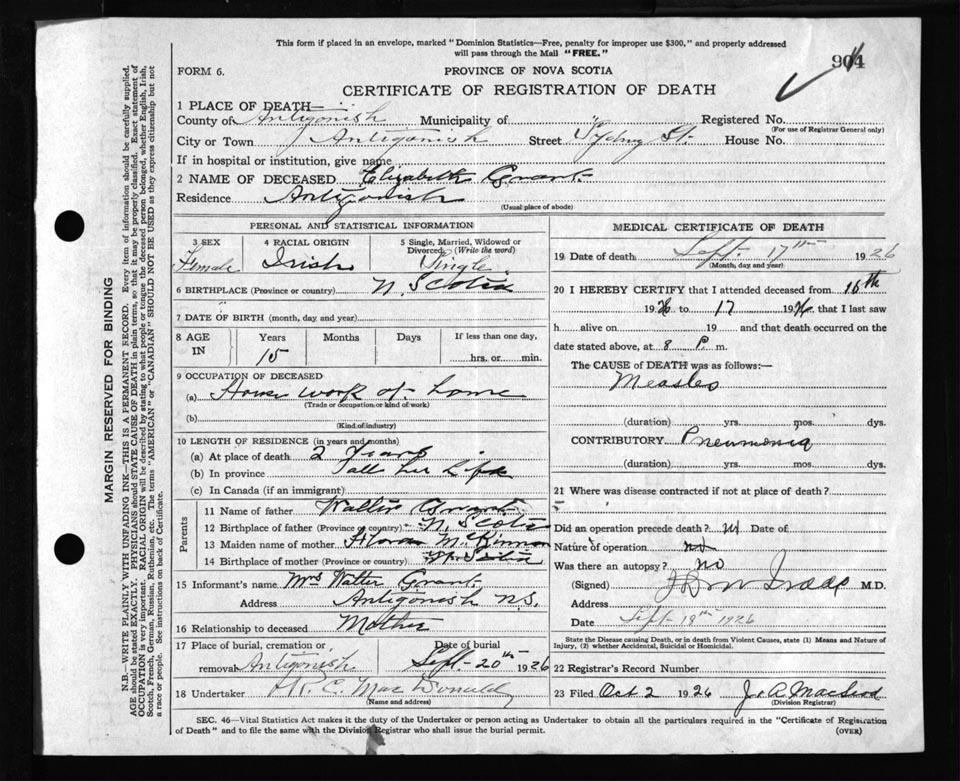 This form if placed in an envelope, marked "Dominion Statistics—Free, penalty for improper use $300," and properly addressed
will pass through the Mail "FREE."
904
FORM 6.
PROVINCE OF NOVA SCOTIA
CERTIFICATE OF REGISTRATION OF DEATH
1 PLACE OF DEATH—
County of Antigonish Municipality of " Registered No.
(For use of Registrar General only)
City or Town Antigonish Street Sydney St. House No.
If in hospital or institution, give name
2 NAME OF DECEASED Elizabeth Grant
Residence Antigonish
(Usual place of abode)
PERSONAL AND STATISTICAL INFORMATION
3 SEX 4 RACIAL ORIGIN 5 Single, Married, Widowed or
Divorced (Write the word)
Female Irish Single
6 BIRTHPLACE (Province or country) N. Scotia
7 DATE OF BIRTH (month, day and year)
8 AGE IN Years Months Days If less than one day,
15 hrs. or min.
9 OCCUPATION OF DECEASED
(a) House work at home
(Trade or occupation or kind of work)
(b)
(Kind of industry)
10 LENGTH OF RESIDENCE (in years and months)
(a) At place of death 2 Years
(b) In province all her life
(c) In Canada (if an immigrant)
Parents
11 Name of father Walter Grant
12 Birthplace of father (Province or country) N. Scotia
13 Maiden name of mother McKinnon
14 Birthplace of mother (Province or country) N. Scotia
15 Informant's name Mrs Walter Grant
Address Antigonish N.S.
16 Relationship to deceased Mother
17 Place of burial, cremation or removal Antigonish Date of burial Sept-20th 1926
18 Undertaker R. C. MacDonald
(Name and address)
MEDICAL CERTIFICATE OF DEATH
19 Date of death Sept. 17th 1926
(Month, day and year)
20 I HEREBY CERTIFY that I attended deceased from 16th
1926 to 17 1926 that I last saw
h alive on 19 and that death occurred on
date stated above, at 8 P. m.
The CAUSE of DEATH was as follows:—
Measles
(duration) yrs. mos. dys.
CONTRIBUTORY Pneumonia
(duration) yrs. mos. dys.
21 Where was disease contracted if not at place of death?
Did an operation precede death? Date of
Nature of operation no
Was there an autopsy? no
(Signed) M.D.
Address
Date Sept 18th 1926
State the Disease causing Death, or in death from Violent Causes, state (1) Means and Nature of
Injury, (2) whether Accidental, Suicidal or Homicidal.
22 Registrar's Record Number
23 Filed Oct 2 1926 J. A. MacLeod
(Division Registrar)
SEC. 46—Vital Statistics Act makes it the duty of the Undertaker or person acting as Undertaker to obtain all the particulars required in the "Certificate of Registration
of Death" and to file the same with the Division Registrar who shall issue the burial permit.
(OVER)
MARGIN RESERVED FOR BINDING
N.B.—WRITE PLAINLY WITH UNFADING INK—THIS IS A PERMANENT RECORD. Every item of information should be carefully supplied.
AGE should be stated EXACTLY. PHYSICIANS should STATE CAUSE OF DEATH in plain terms, so that it may be properly classified. Exact statement of
OCCUPATION is very important. RACIAL ORIGIN will be described by stating to what people or tongue the deceased person belonged, whether English, Irish,
Scotch, French, German, Russian, Ruthenian, etc. The terms "AMERICAN" or "CANADIAN" SHOULD NOT BE USED as they express citizenship but not
a race or people. See instructions on back of Certificate.